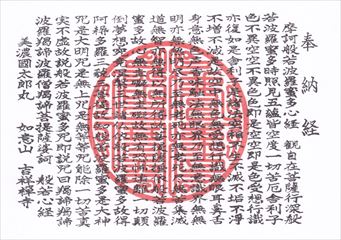 奉納経
摩訶般若波羅蜜多心経 觀自在菩薩行深般
若波羅蜜多時照見五蘊皆空度一切苦厄舎利子
色不異空空不異色色即是空空即是色受想行識
亦復如是舎利子是諸法空相不生不滅不垢不浄
不增不減是故空中無色無受想行識無眼耳鼻舌
身意無色聲香味觸法無眼界乃至無意識界無無
明亦無無明盡乃至無老死亦無老死盡無苦集滅
道無智亦無得以無所得故菩提薩埵依般若波羅
蜜多故心無罣礙無罣礙故無有恐怖遠離一切顛
倒夢想究竟涅槃三世諸佛依般若波羅蜜多故得
阿耨多羅三藐三菩提故知般若波羅蜜多是大神
咒是大明咒是無上咒是無等等咒能除一切苦真
実不虚故説般若波羅蜜多咒即説咒曰羯諦羯諦
波羅羯諦波羅僧羯諦菩提薩婆訶 般若心経
美濃國太郎丸 如意山 吉祥禅寺